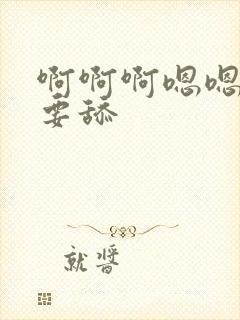 啊啊啊嗯嗯
要舔
就醬